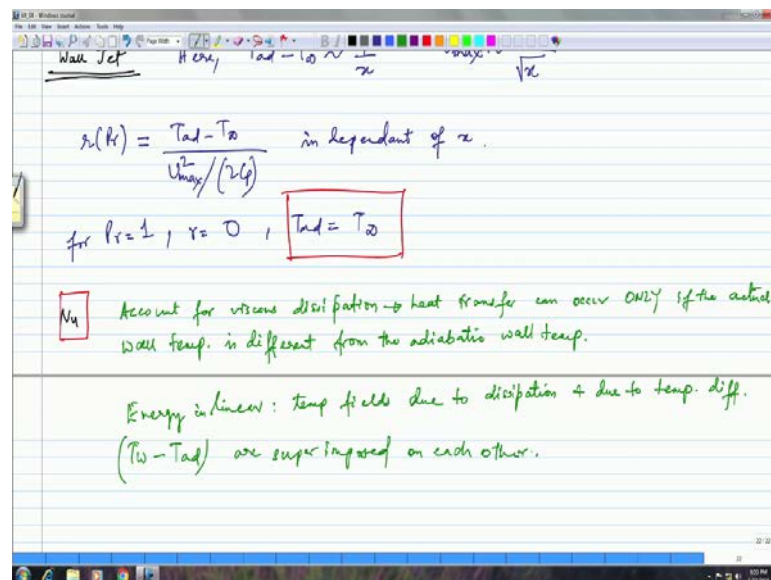 File Edit View Insert Actions Tools Help
B
Wall Jet Here, Tad - T∞ ~ 1/x ~ √x
r(Pr) = (Tad - T∞) / (U²max/(2Cp)) independant of x.
for Pr = 1, r = 0, Tad = T∞
Nu Account for viscous dissipation → heat transfer can occur ONLY if the actual
wall temp. is different from the adiabatic wall temp.
Energy is linear: temp fields due to dissipation & due to temp. diff.
(Tw - Tad) are super imposed on each other.
22